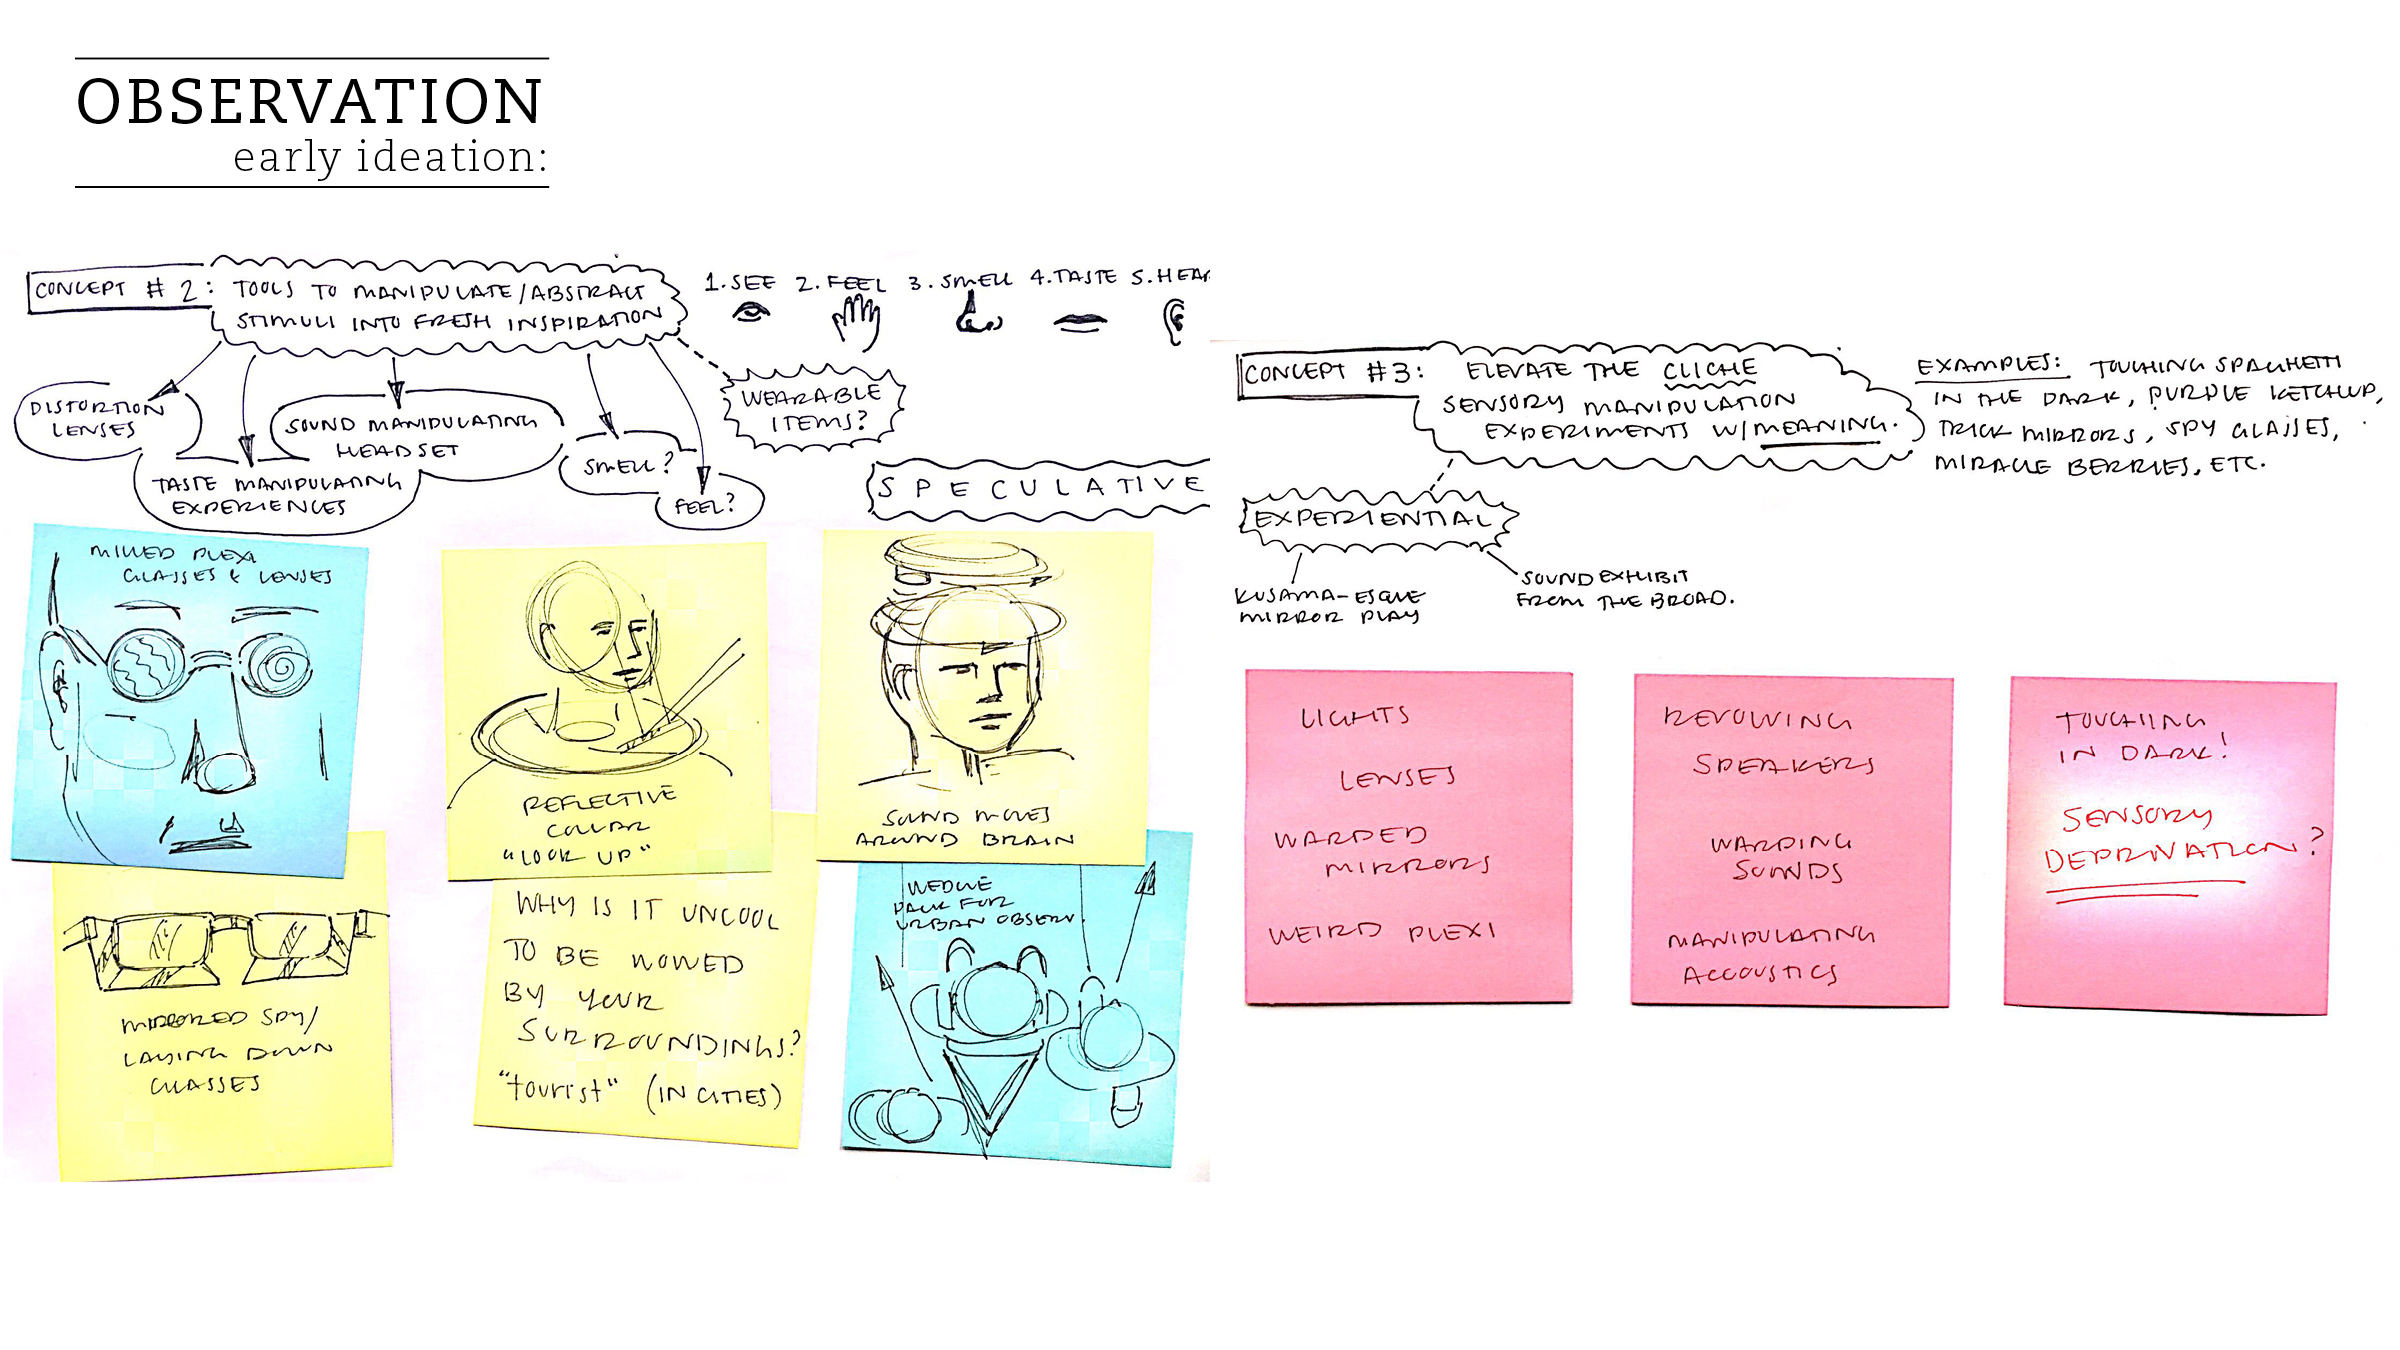 OBSERVATION
early ideation:
CONCEPT # 2: TOOLS TO MANIPULATE/ABSTRACT
STIMULI INTO FRESH INSPIRATION
1.SEE 2.FEEL 3.SMELL 4.TASTE 5.HEAR
DISTORTION
LENSES
TASTE MANIPULATING
EXPERIENCES
SOUND MANIPULATING
HEADSET
SMELL?
FEEL?
WEARABLE
ITEMS?
SPECULATIVE
MILLED PLEXI
GLASSES & LENSES
REFLECTIVE
COLLAR
"LOOK UP"
SOUND MOVES
AROUND BRAIN
MIRRORED SPY/
LAYING DOWN
GLASSES
WHY IS IT UNCOOL
TO BE WOWED
BY YOUR
SURROUNDINGS?
"tourist" (IN CITIES)
WEDGE
PACK FOR
URBAN OBSERV.
CONCEPT #3: ELEVATE THE CLICHE
SENSORY MANIPULATION
EXPERIMENTS W/MEANING.
EXAMPLES: TOUCHING SPAGHETTI
IN THE DARK, PURPLE KETCHUP,
TRICK MIRRORS, SPY GLASSES,
MIRACLE BERRIES, ETC.
EXPERIENTIAL
KUSAMA-ESQUE
MIRROR PLAY
SOUND EXHIBIT
FROM THE BROAD.
LIGHTS
LENSES
WARPED
MIRRORS
WEIRD PLEXI
REVOLVING
SPEAKERS
WARPING
SOUNDS
MANIPULATING
ACCOUSTICS
TOUCHING
IN DARK!
SENSORY
DEPRIVATION?